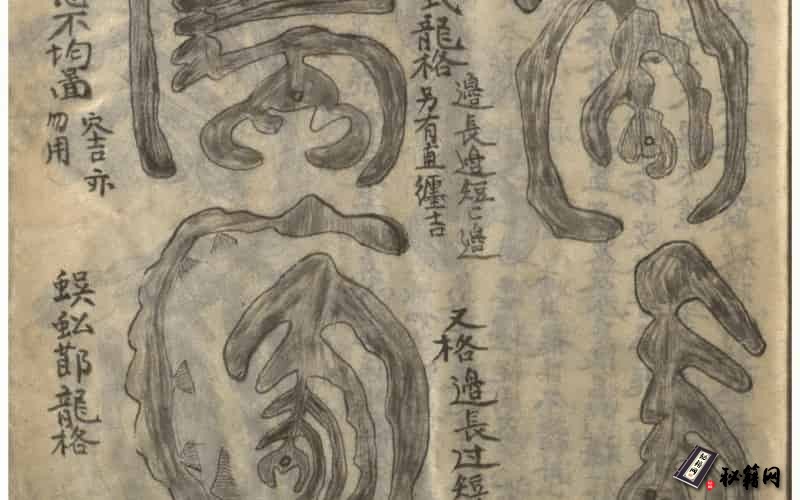 龍格
邊長邊短匕邊
另有直纏吉
又格邊長过短
不均圖
穴吉亦
勿用
蜈蚣節龍格
秘籍网